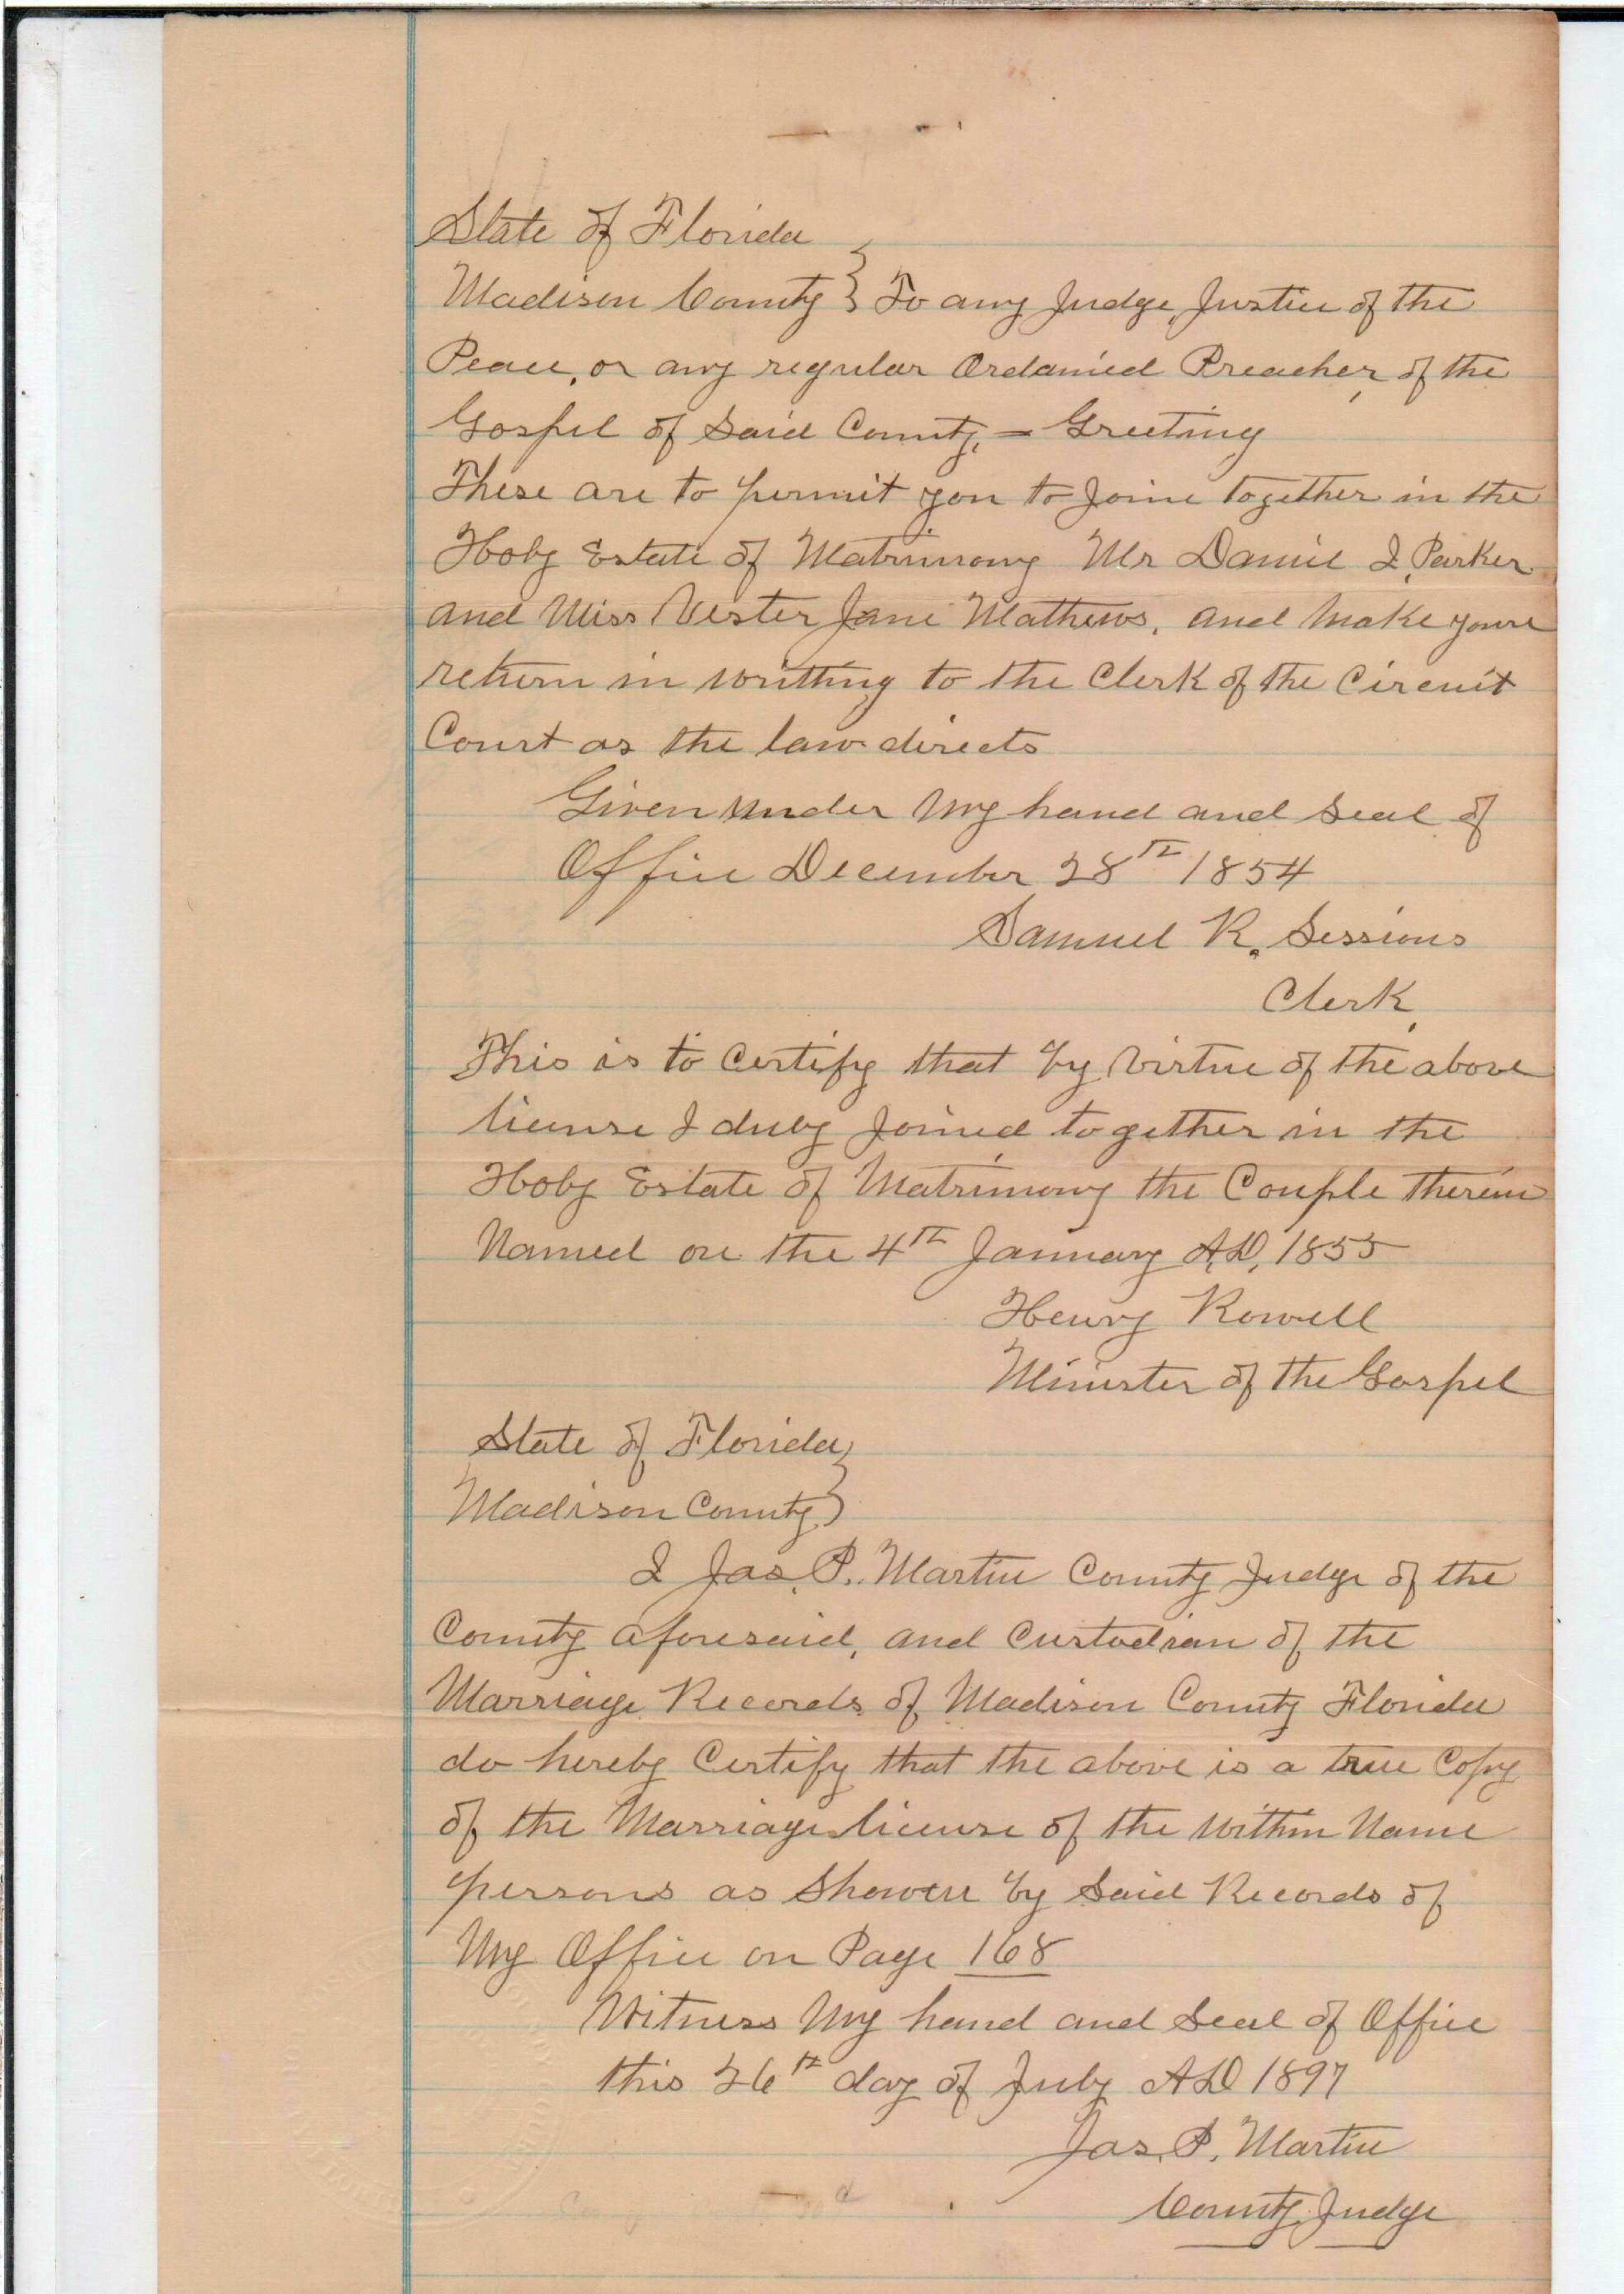 State of Florida
Madison County } To any Judge, Justice of the
Peace, or any regular Ordained Preacher, of the
Gospel of Said County, = Greeting
These are to permit you to Joine together in the
Holy Estate of Matrimony Mr Daniel I, Parker
and Miss Vester Jane Mathews, and Make youre
return in writting to the Clerk of the Circuit
Court as the law directs
Given under My hand and Seal of
Office December 28th 1854
Samuel R. Sessions
Clerk,
This is to Certify that by Virtue of the above
license I duly Joined together in the
Holy Estate of Matrimony the Couple therein
Named on the 4th January A.D, 1855
Henry Rowell
Minister of the Gospel
State of Florida
Madison County }
I Jas. P. Martin County Judge of the
County aforesaid, and Custodian of the
Marriage Records of Madison County Florida
do hereby Certify that the above is a true Copy
of the Marriage license of the Within Name
persons as Shown by Said Records of
My Office on Page 168
Witness My hand and Seal of Office
this 26th day of July AD 1897
Jas. P. Martin
County Judge